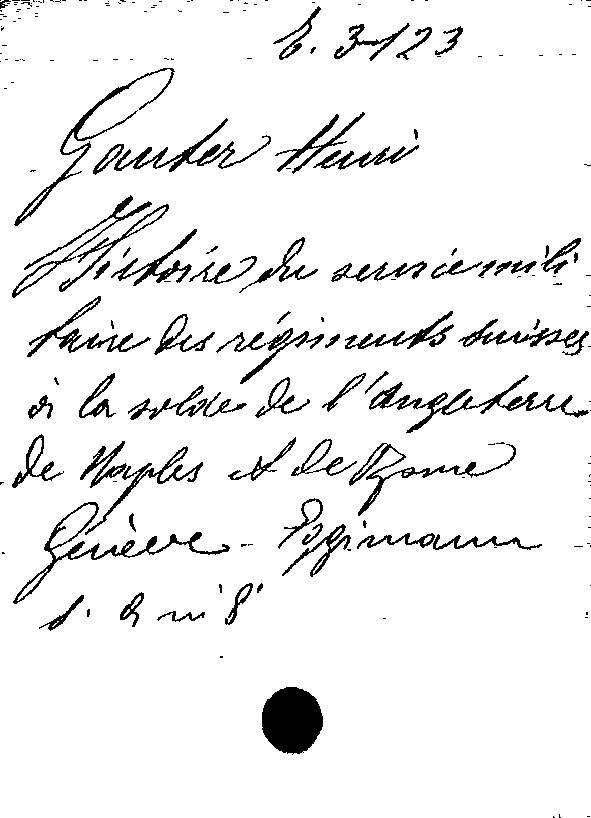 E. 3-123
Ganter Henri
Histoire du service mili
taire des régiments suisses
à la solde de l'Angleterre
de Naples et de Rome
Genève - Eggimann
s. a. in 8°